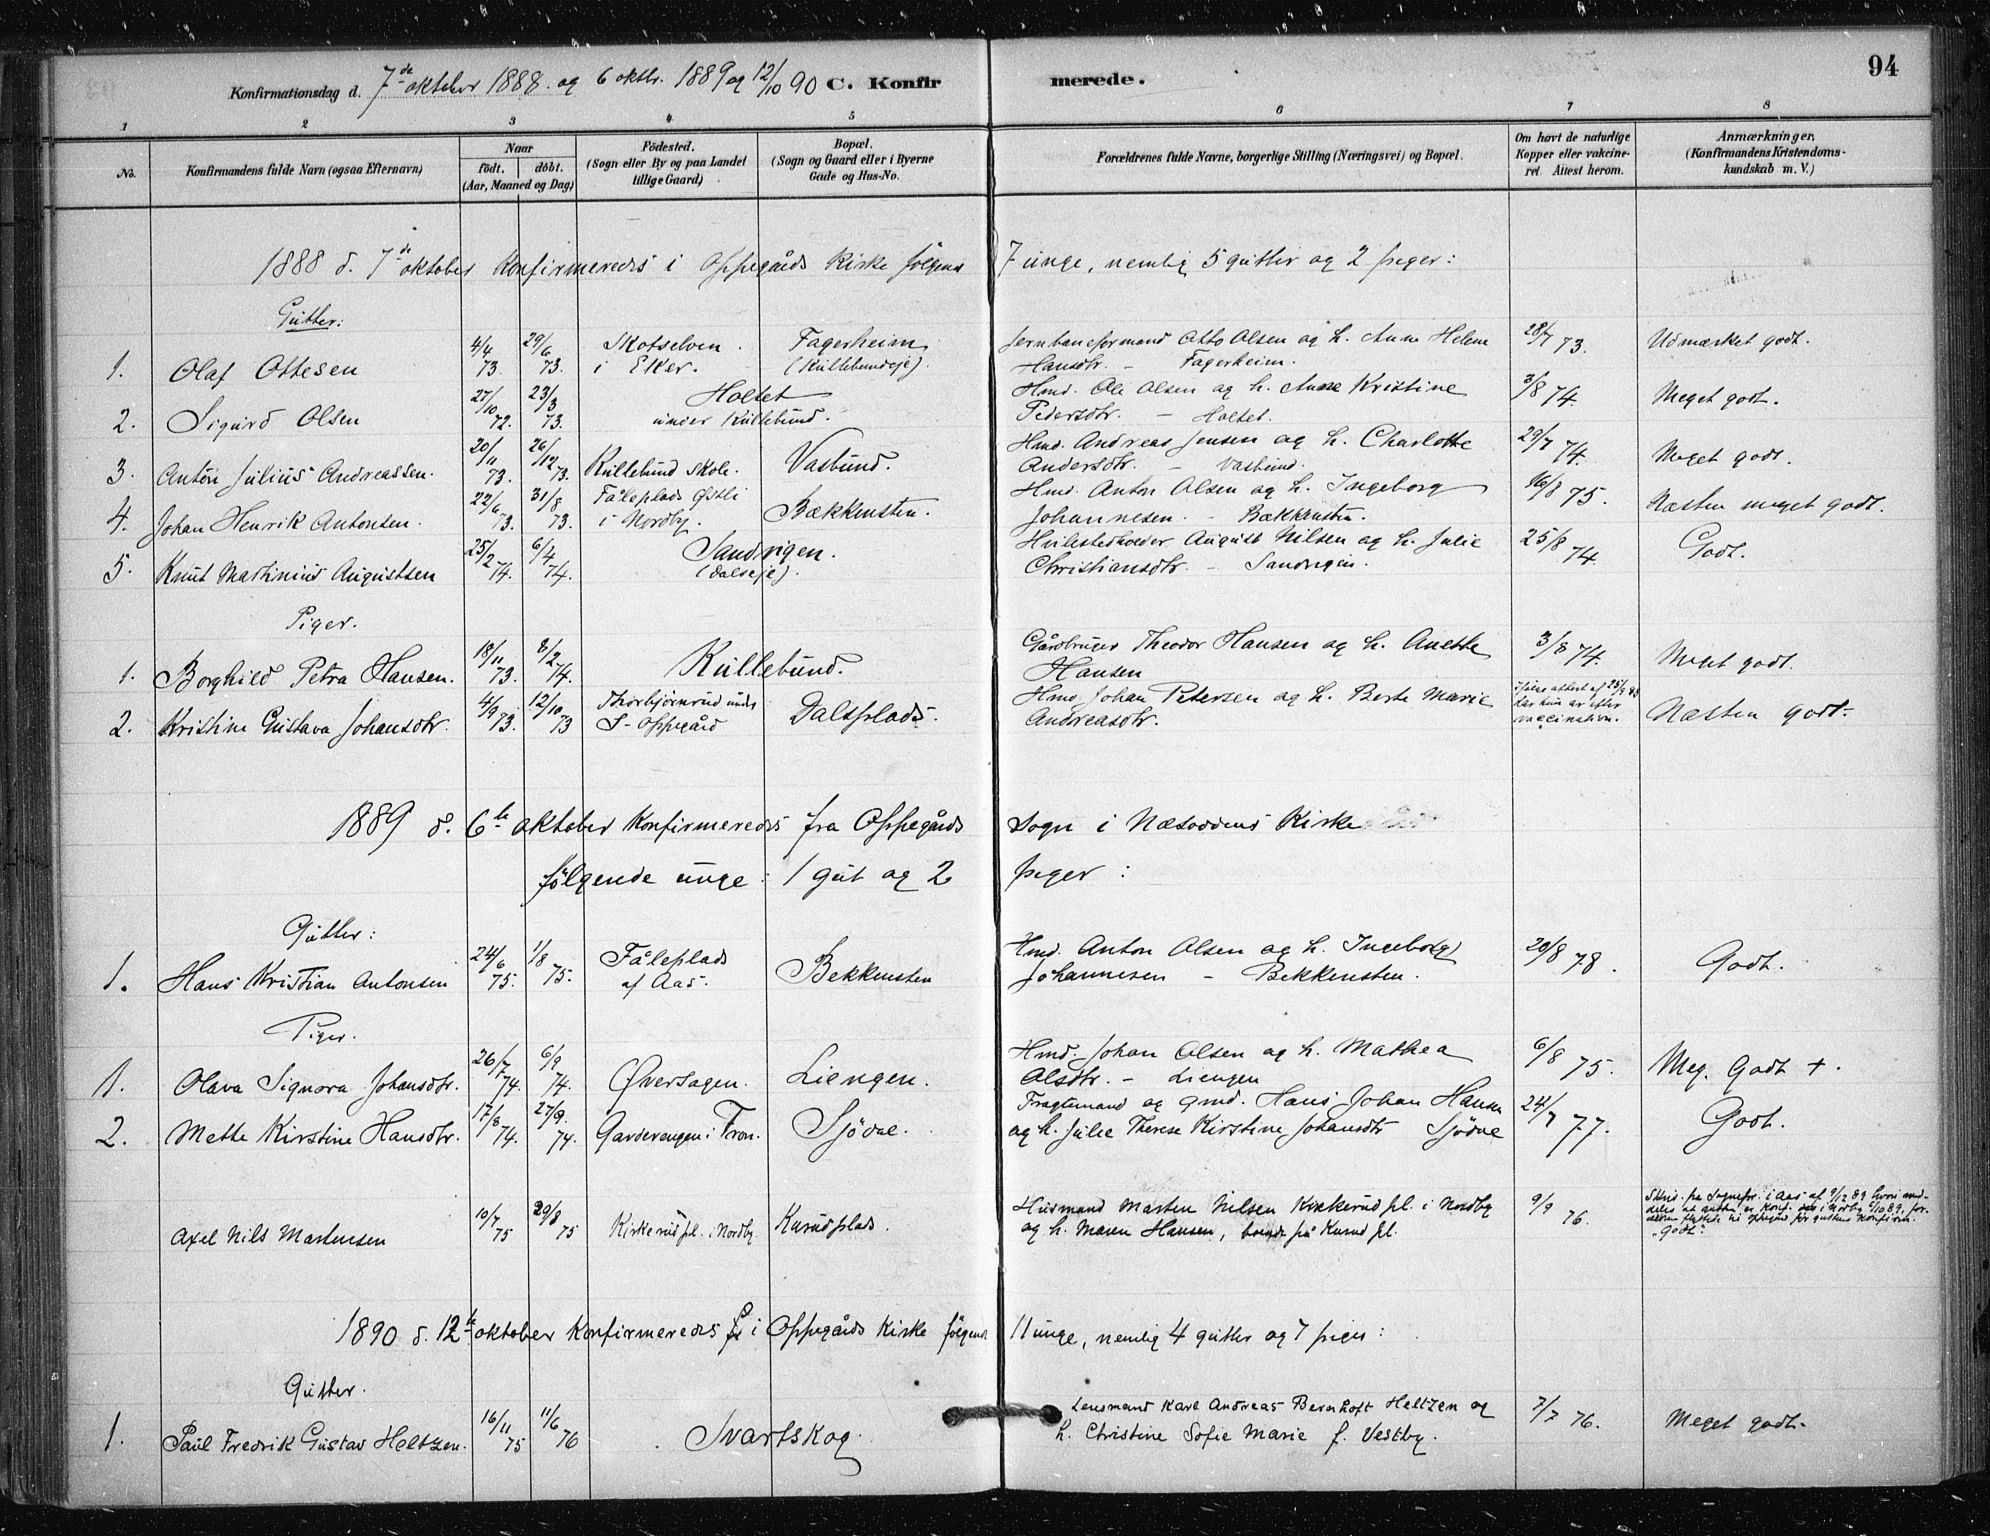 94
Konfirmationsdag d. 7de oktober 1888. og 6 oktbr. 1889 og 12/10 90 C. Konfirmerede.
1 2 3 4 5 6 7 8
No. Konfirmandens fulde Navn (ogsaa Efternavn) Naar födt. döbt. (Aar, Maaned og Dag) Födested. (Sogn eller By og paa Landet tillige Gaard) Bopæl. (Sogn og Gaard eller i Byerne Gade og Hus-No. Forældrenes fulde Navne, borgerlige Stilling (Næringsvei) og Bopæl. Om havt de naturlige Kopper eller vakcineret. Attest herom. Anmærkninger. (Konfirmandens Kristendomskundskab m. V.)
1888 d. 7de oktober konfirmeredes i Oppegårds Kirke følgende 7 unge, nemlig 5 gutter og 2 piger:
Gutter:
1. Olaf Ottesen 4/4 73. 29/6 73. Skotselven i Eker. Fagerheim (Kullebundeje). Jernbaneformand Otto Olsen og h. Anne Helene Hansdtr. – Fagerheim. 28/7 73. Udmærket godt.
2. Sigurd Olsen 27/10 72. 23/3 73. Holtet under Kullebund. Hmd. Ole Olsen og h. Anne Kristine Pedersdtr. – Holtet. 3/8 74. Meget godt.
3. Anton Julius Andreassen. 20/11 73. 26/12 73. Kullebund skole. Vasbund. Hmd. Andreas Jensen og h. Charlotte Andersdtr. – Vasbund. 29/7 74. Meget godt.
4. Johan Henrik Antonsen. 22/6 73. 31/8 73. Fåleplads Østli i Nordby. Bækkensten. Hmd. Anton Olsen og h. Ingeborg Johannesen. – Bækkensten. 16/8 75. Næsten meget godt.
5. Knut Martinius Augustsen 25/2 74. 6/4 74. Sandvigen. (Dalseje). Hvilestedholder August Nilsen og h. Julie Christiansdtr. – Sandvigen. 25/8 74. Godt.
Piger.
1. Borghild Petra Hansen. 18/11 73. 8/2 74. Kullebund. Gårdbruger Theodor Hansen og h. Anette Hansen 3/8 74. Meget godt.
2. Kristine Gustava Johansdtr. 4/9 73. 12/10 73 Thorbjørnrud under S- Oppegård Dalsplads. Hmd. Johan Petersen og h. Berte Marie Andreasdtr. Ifølge attest af 25/9 88 har hun ar efter vaccination. Næsten godt.
1889 d. 6te oktober konfirmeredes fra Oppegårds Sogn i Næsoddens Kirke
følgende unge: 1 gut og 2 piger:
Gutter:
1. Hans Kristian Antonsen 24/6 75. 1/8 75. Fåleplads af Aas. Bekkensten Hmd. Anton Olsen og h. Ingeborg Johannesen – Bekkensten. 20/8 78. Godt.
Piger.
1. Olava Signora Johansdtr. 26/7 74. 6/9 74. Øversagen. Liengen. Hmd. Johan Olsen og h. Mathea Olsdtr. – Liengen 6/8 75. Meg. Godt +.
2. Mette Kirstine Hansdtr. 17/8 74. 27/9 74. Garderengen i Fron. Sjödal. Fragtemand og gmd. Hans Johan Hansen og h. Julie Therese Kirstine Johansdtr Sjödal 24/7 77. Godt.
Axel Nils Martinsen 10/7 75 29/8 75 Kirkerud pl. i Nordby. Kurudplads. Husmand Marten Nilsen Kirkerud pl. i Nordby og h. Maren Hansen, boende på Kurud pl. 9/9 76. Skriv. fra Sognepr. i Aas af 9/12 89 hvori meddeles at gutten er konf. i Nordby 6/10 89. foreldrene flyttede til Oppegård før guttens konfirm. "Godt".
1890 d. 12te oktober konfirmeredes i Oppegårds Kirke følgende 11 unge, nemlig 4 gutter og 7 piger:
Gutter.
1. Paul Fredrik Gustav Heltzen. 16/11 75 11/6 76 Svartskog. Lensmand Karl Andreas Bernhoft Heltzen og h. Christine Sofie Marie f. Vestby. 7/7 76. Meget godt.